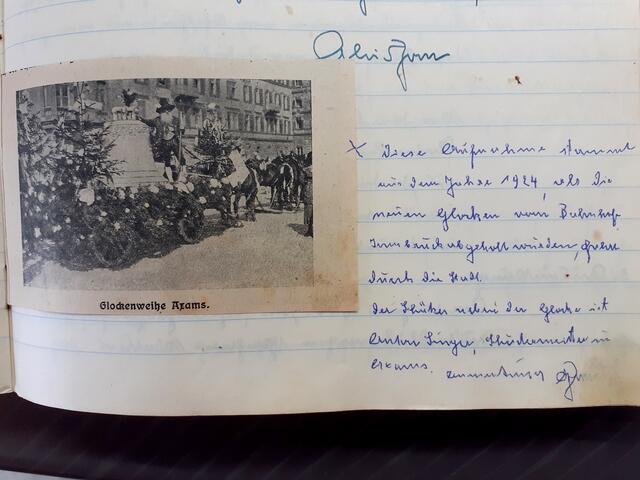 x Diese Aufnahme stammt
aus dem Jahre 1924, als die
neuen Glocken vom Bahnhof
Innsbruck abgeholt wurden,
durch die Stadt.
Der Schütze neben der Glocke ist
Anton Singer, in
Axams.
Glockenweihe Axams.